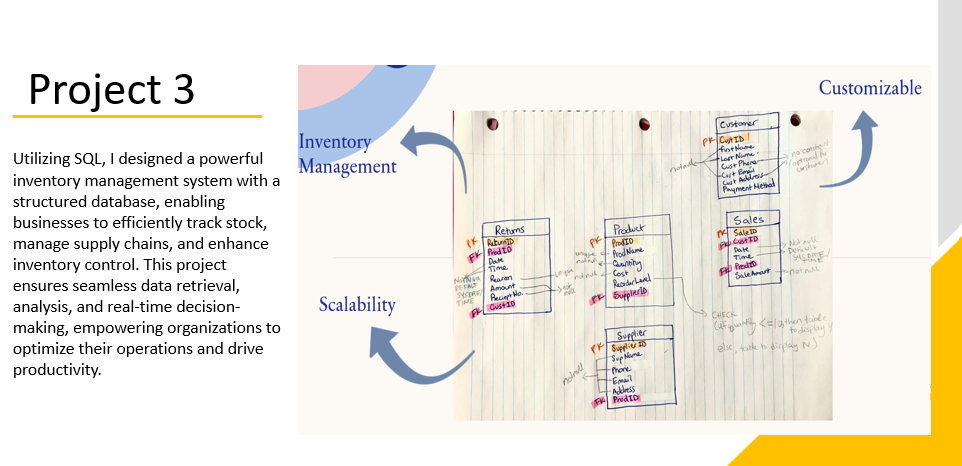 Project 3
Utilizing SQL, I designed a powerful
inventory management system with a
structured database, enabling
businesses to efficiently track stock,
manage supply chains, and enhance
inventory control. This project
ensures seamless data retrieval,
analysis, and real-time decision-
making, empowering organizations to
optimize their operations and drive
productivity.
Inventory
Management
Scalability
Customizable
Customer
PK CustID
FirstName
Last Name
Cust Phone
Cust Email
Cust Address
Payment Method
not null
no
optional to
customer
Returns
PK ReturnID
FK ProdID
Date
Time
Reason
Amount
Reciept No.
FK CustID
Not Null
DEFAULT
SYSDATE/
TIME
unique
not null
Product
PK ProdID
ProdName
Quantity
Cost
ReorderLevel
FK SupplierID
unique
not null
not null
Sales
PK SaleID
FK CustID
Date
Time
FK ProdID
SaleAmount
Not null
DEFAULT
SYSDATE/
TIME
not null
CHECK
(if quantity <=10, then table
to display Y
else, table to display N)
Supplier
PK SupplierID
SupName
Phone
Email
Address
FK ProdID
not null